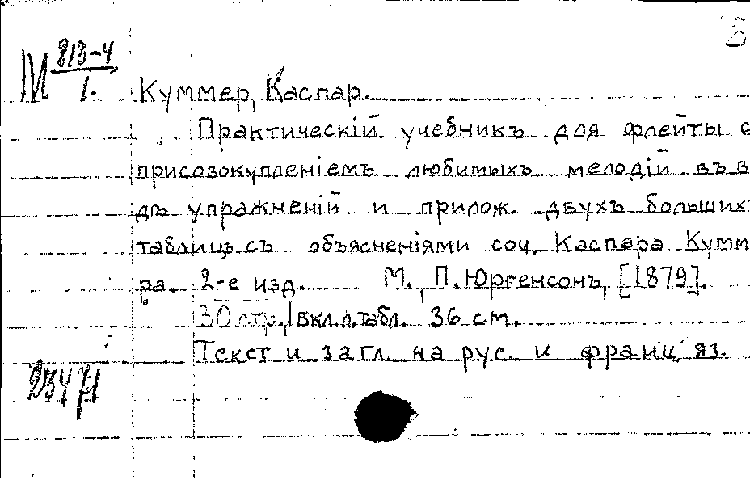 М 813-4
1.
Куммер, Каспар.
Практическiй учебникъ для флейты с
присовокупленiемъ любимыхъ мелодiй въ в
дѣ упражненiй и прилож. двухъ большихъ
таблицъ съ объясненiями соч. Каспара Кумм
ра. 2-е изд. М., П. Юргенсонъ, [1879].
30 стр., 1 вкл. л. табл. 36 см.
Текст и загл. на рус. и франц яз.